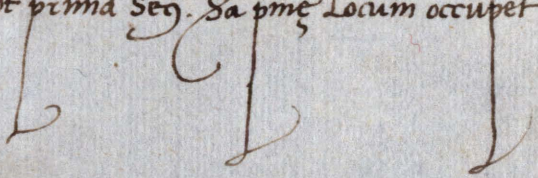 prima Seq. 2a pme Locum occupet